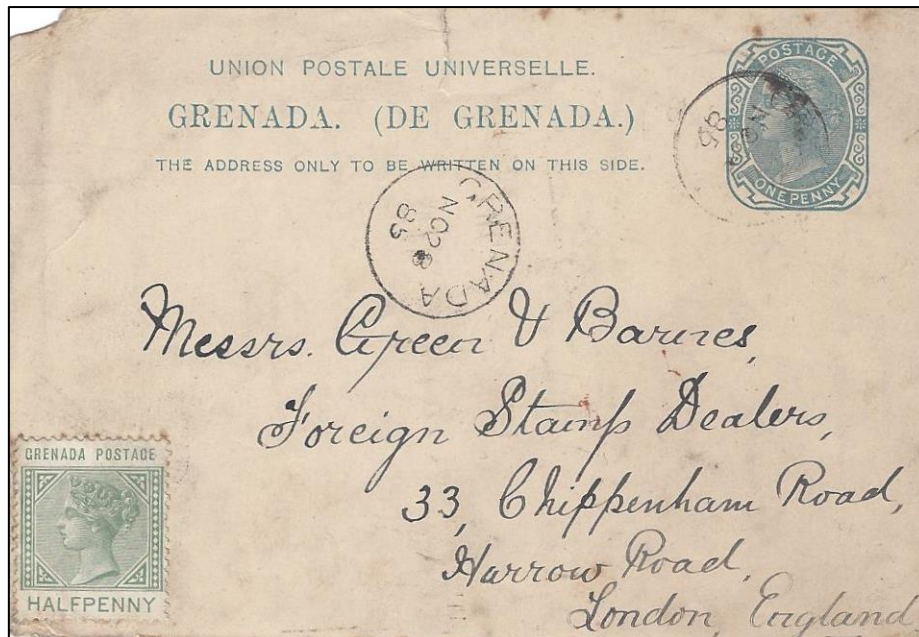 UNION POSTALE UNIVERSELLE.
GRENADA. (DE GRENADA.)
THE ADDRESS ONLY TO BE WRITTEN ON THIS SIDE.
POSTAGE
ONE PENNY
86
GRENADA
NO 28
85
Messrs. Green & Barnes,
Foreign Stamp Dealers,
33, Chippenham Road,
Harrow Road,
London, England
GRENADA POSTAGE
HALFPENNY